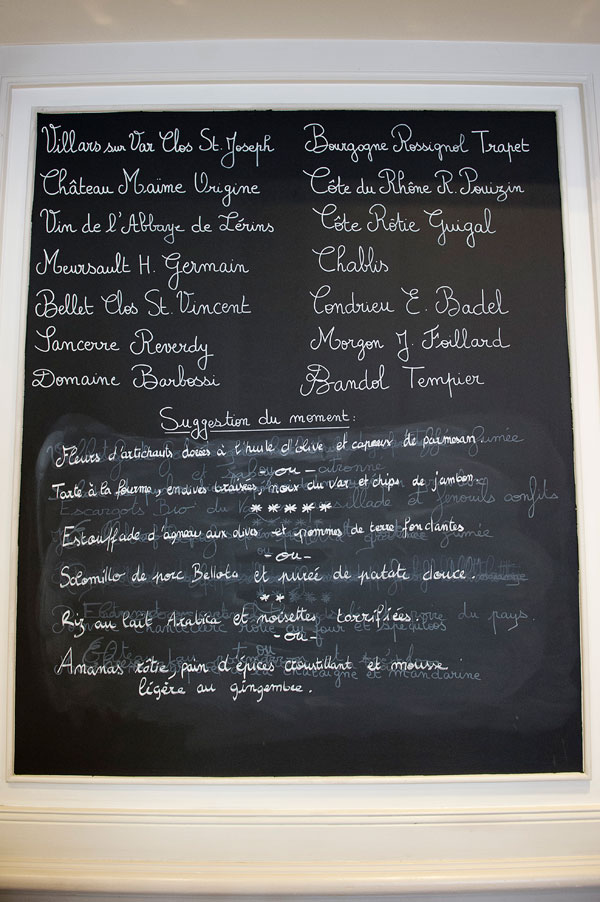 Villars sur Var Clos St. Joseph
Château Maïme Origine
Vin de l'Abbaye de Lérins
Meursault H. Germain
Bellet Clos St. Vincent
Sancerre Reverdy
Domaine Barbossi
Bourgogne Rossignol Trapet
Côte du Rhône R. Pouizin
Côte Rôtie Guigal
Chablis
Condrieu E. Badel
Morgon J. Foillard
Bandol Tempier
Suggestion du moment:
Fleurs d'artichauts dorées à l'huile d'olive et capeaux de parmesan
- ou -
Tarte à la fourme, endives braisées, noix du var et chips de jambon.
*****
Estouffade d'agneau aux olives et pommes de terre fondantes
- ou -
Solomillo de porc Bellota et purée de patate douce.
**
Riz au lait Arabica et noisettes torrifiées.
- ou -
Ananas rôtie, pain d'épices croutillant et mousse
ligère au gingembre.